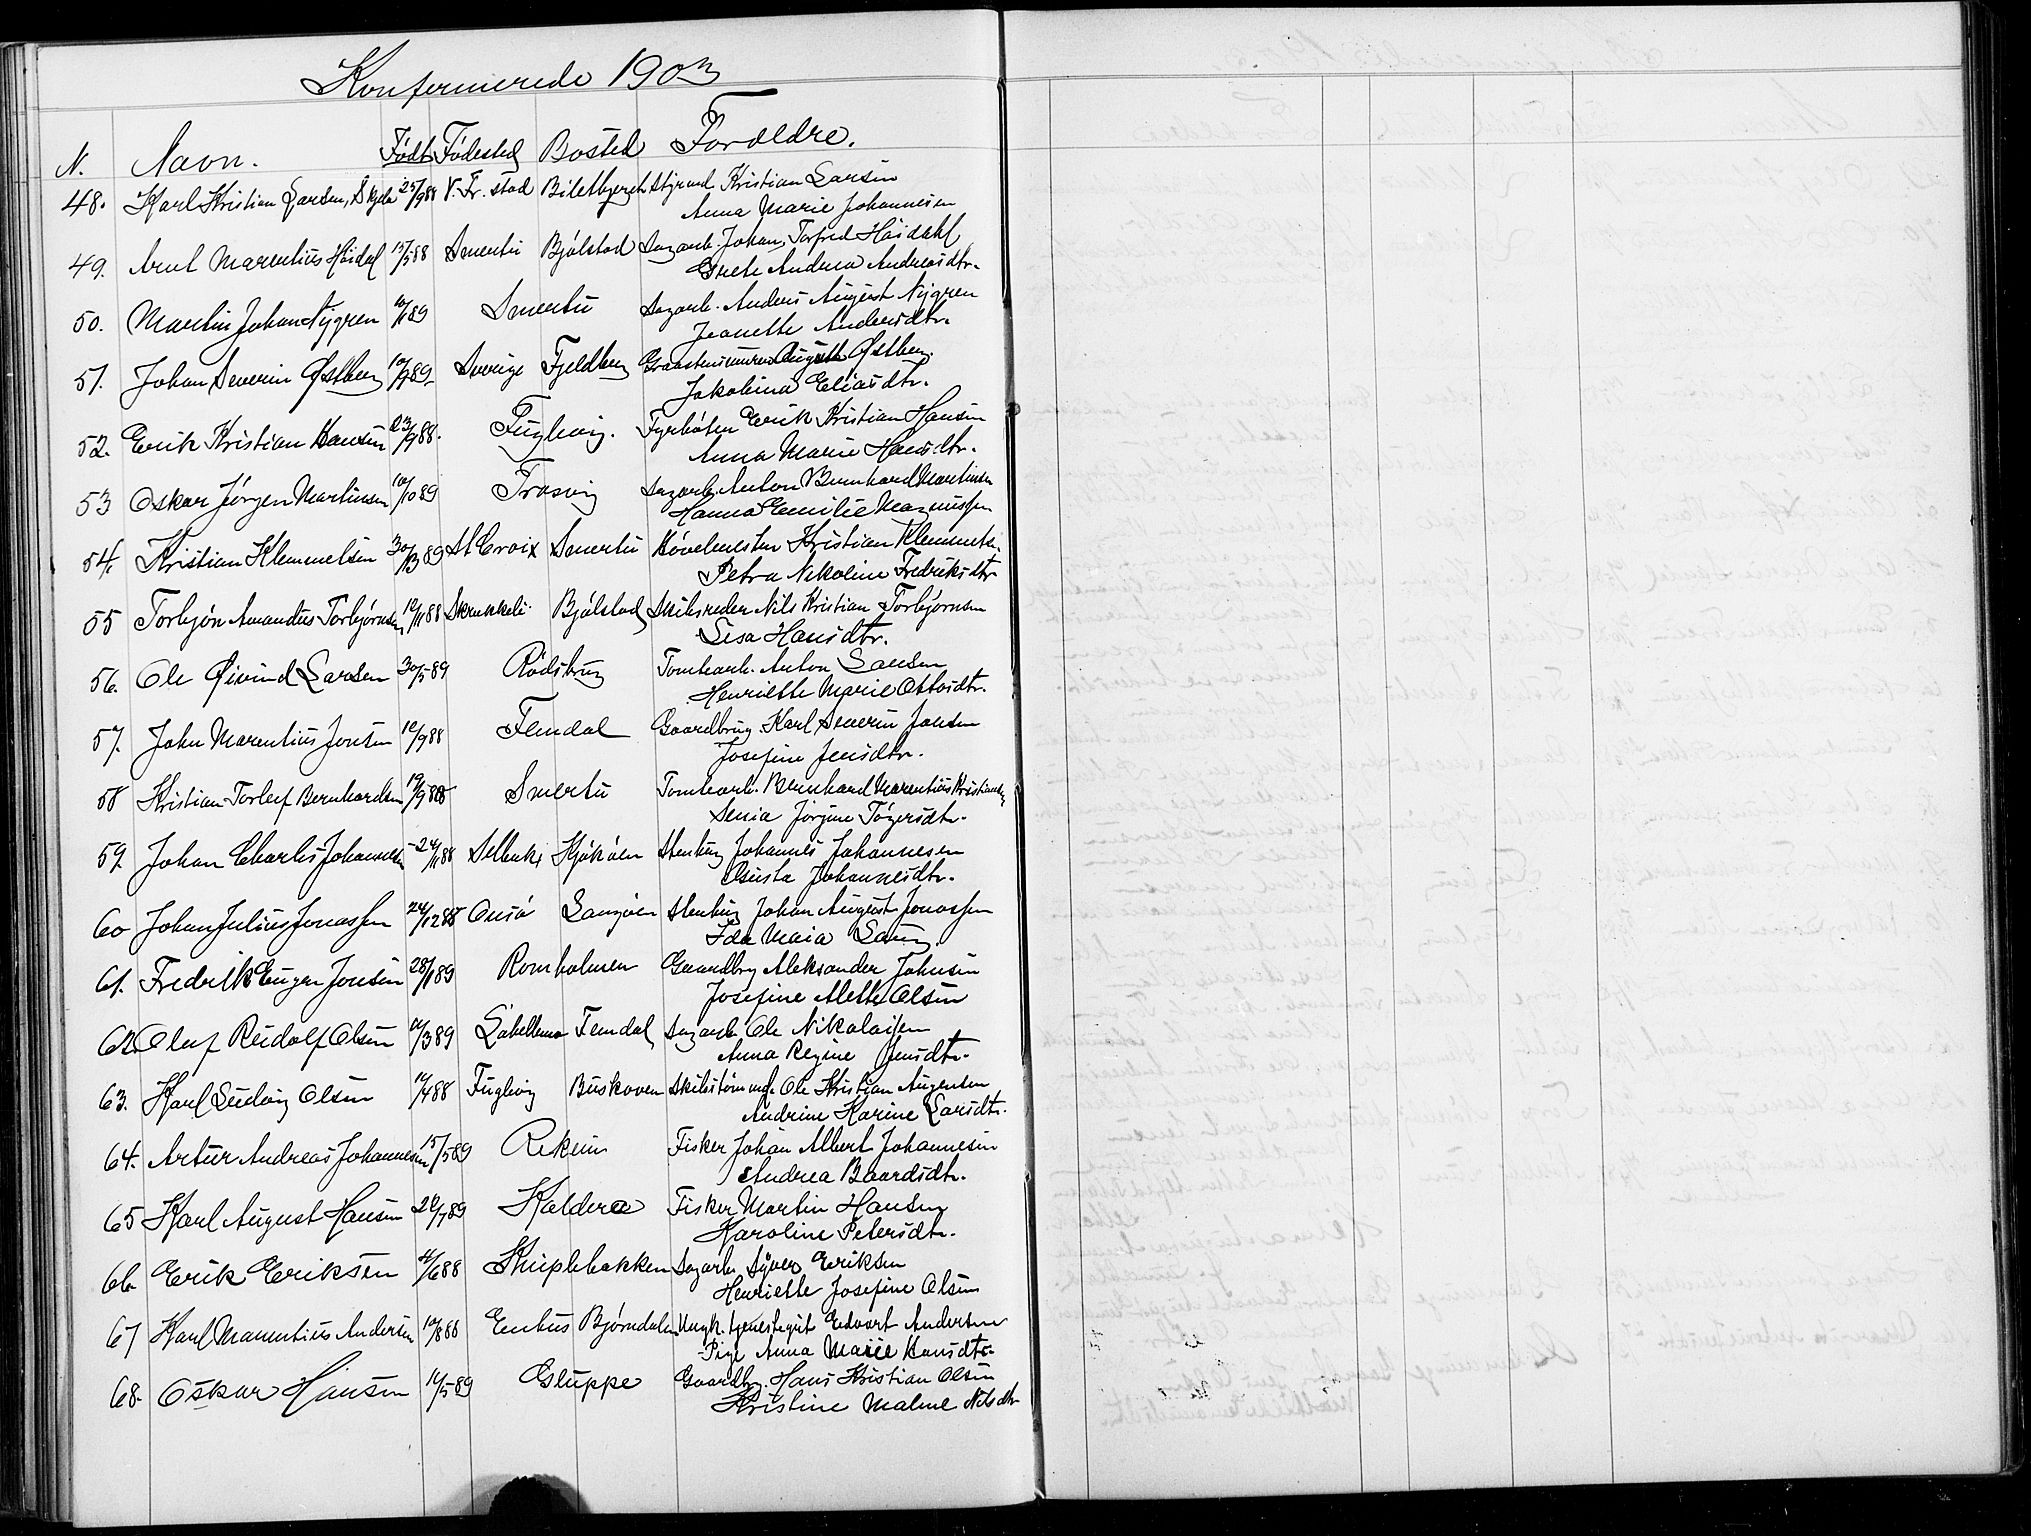 Konfermerede 1903
N. Navn. Født Fødested Bosted Foreldre.
48. Karl Kristian Larsen, Skjela 25/9 88 V. Fr. stad Styrmd Kristian Larsen
Anna Marie Johannesen
49. Arnt Marentius Høidal 88 Smertu Bjølstad Sagarb. Johan Torfred Høidahl
Grete Andrea Andreasdtr.
50. Martin Johan Nygren 10/1 89 Smertu Sagarb. Anders August Nygren
Jeanette Andersdtr.
51. Johan Severin Østberg 10/9 89 Sverige Fjeldberg August Østberg.
Jakobina Eliasdtr.
52. Erik Kristian Hansen 23/9 88. Fuglevig. Fyrbøter Erik Kristian Hansen
Anna Marie Hansdtr.
53 Oskar Jørgen Martinsen 10/10 89 Trosvig Sagarb. Anton Bernhard Martinsen
Hanna Emilie Magnussen
54. Kristian Klemmetsen 30/3 89 St Croix Smertu Høvelmester Kristian Klemmets.
Petra Nikoline Fredriksdtr
55 Torbjøn Amandus Torbjørnsen 12/11 88 Skrukkeli Bjølstad Skibsreder Nils Kristian Torbjørnsen
Lisa Hansdtr.
56. Ole Øivind Larsen 30/5 89 Rødsbrug Tomtearb. Anton Larsen
Henriette Marie Ottosdtr.
57. John Marentius Jensen 10/9 88 Femdal Gaardbrug. Karl Severin Jensen
Josefine Jensdtr.
58 Kristian Torleif Bernhardsen 19/9 88 Smertu Tomtearb. Bernhard Marentius Kristiansen
Senia Jørgine Tøgersdtr.
59. Johan Charles Johannesen 24/11 88 Selbak Kjøkøen Stenhug Johannes Johannesen
Gusta Johannesdtr.
60 Johan Julius Jonassen 24/12 88 Onsø Langøen Stenhug Johan August Jonassen
Ida Maia Lang.
61. Fredrik Eugen Jensen 28/1 89 Romholmen Gaardbrg Aleksander Johnsen
Josefine Alette Olsen
62. Oluf Rudolf Olsen 3 89 Femdal Sagarb Ole Nikolaisen
Anna Regine Jensdtr.
63. Karl Ludvig Olsen 4 88 Fuglevig Buskoven Skibstømmd. Ole Kristian Augensen
Andrine Karine Larsdtr.
64. Artur Andreas Johannesen 15/5 89 Rekuin Fisker Johan Albert Johannesen
Andrea Baardsdtr.
65 Karl August Hansen 7 89 Kaldera Fisker Martin Hansen
Karoline Petersdtr.
66. Erik Eriksen 6 88 Kniplebakken Sagarb Syver Eriksen
Henriette Josefine Olsen
67 Karl Marentius Andersen 10/8 88 Enhus Bjørndalen Ungk. tjenestegut Edvart Andersen
Pige Anna Marie Hansdtr.
68. Oskar Hansen 5 89 Gluppe Gaardb. Hans Kristian Olsen
Kristine Malene Nilsdtr